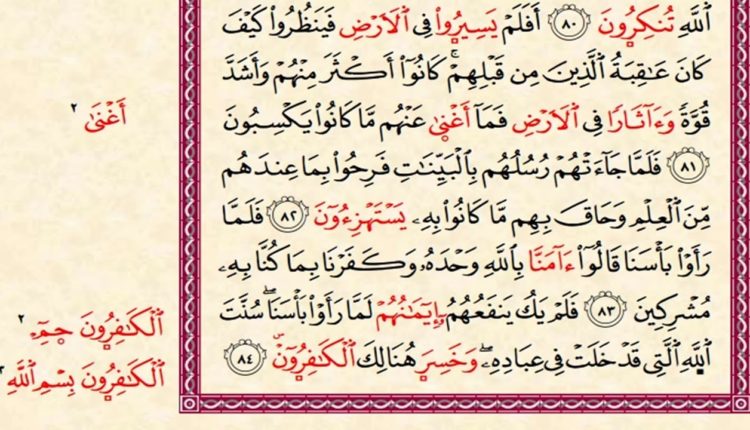 ٱللَّهِ تُنكِرُونَ ٨٠ أَفَلَمۡ يَسِيرُواْ فِي ٱلۡأَرۡضِ فَيَنظُرُواْ كَيۡفَ
كَانَ عَٰقِبَةُ ٱلَّذِينَ مِن قَبۡلِهِمۡۚ كَانُوٓاْ أَكۡثَرَ مِنۡهُمۡ وَأَشَدَّ
قُوَّةٗ وَءَاثَارٗا فِي ٱلۡأَرۡضِ فَمَآ أَغۡنَىٰ عَنۡهُم مَّا كَانُواْ يَكۡسِبُونَ
أَغۡنَىٰ ٢
٨١ فَلَمَّا جَآءَتۡهُمۡ رُسُلُهُم بِٱلۡبَيِّنَٰتِ فَرِحُواْ بِمَا عِندَهُم
مِّنَ ٱلۡعِلۡمِ وَحَاقَ بِهِم مَّا كَانُواْ بِهِۦ يَسۡتَهۡزِءُونَ ٨٢ فَلَمَّا
رَأَوۡاْ بَأۡسَنَا قَالُوٓاْ ءَامَنَّا بِٱللَّهِ وَحۡدَهُۥ وَكَفَرۡنَا بِمَا كُنَّا بِهِۦ
مُشۡرِكِينَ ٨٣ فَلَمۡ يَكُ يَنفَعُهُمۡ إِيمَٰنُهُمۡ لَمَّا رَأَوۡاْ بَأۡسَنَاۖ سُنَّتَ
ٱلۡكَٰفِرُونَ حمٓ ٢
ٱللَّهِ ٱلَّتِي قَدۡ خَلَتۡ فِي عِبَادِهِۦۖ وَخَسِرَ هُنَالِكَ ٱلۡكَٰفِرُونَ ٨٤
ٱلۡكَٰفِرُونَ بِسۡمِ ٱللَّهِ ٣